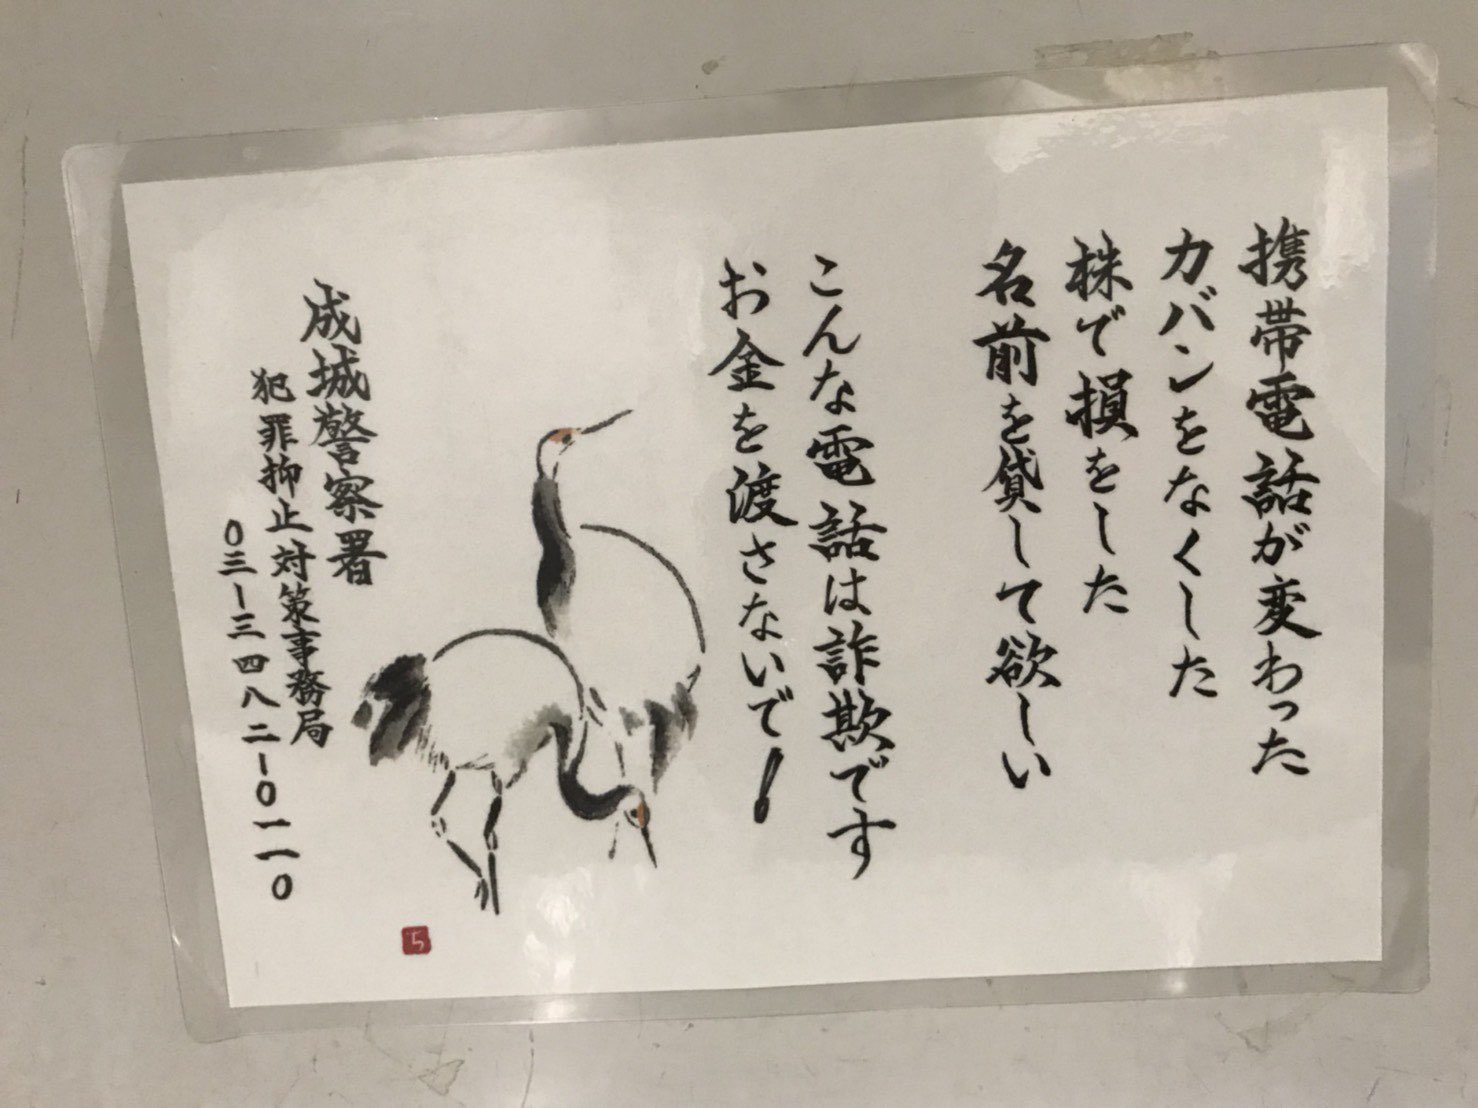 携帯電話が変わった
カバンをなくした
株で損をした
名前を貸して欲しい
こんな電話は詐欺です
お金を渡さないで！
成城警察署
犯罪抑止対策事務局
〇三ー三四八二ー〇一一〇
ち